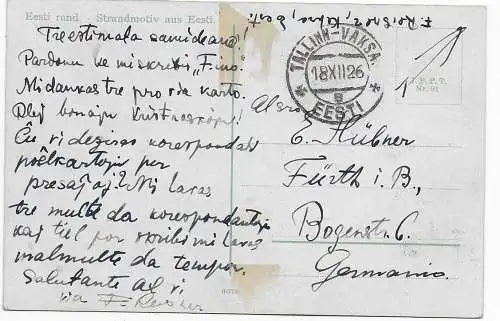 Eesti rand. - Strandmotiv aus Eesti.
Treestimata samideano!
Pardonu ke mi skribis "Fino".
Mi dankas tre pro via karto.
Plej bonajn Kristnaskojn!
Ĉu vi deziras korespondadi
poŝtkartojn per
presaĵoj? Mi havas
tre multe da korespondantoj
kaj tiel por skribi mi havas
malmulte da tempo.
Salutante al vi
via F. Reisner
TALLINN-VAKSAL
18 XII 26
B
EESTI
Nr. 91
Al sro
E. Hübner
Fürth i. B.,
Bogenstr. 6.
Germanio.